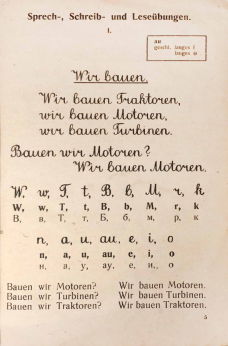 Sprech-, Schreib- und Leseübungen.
1.
au
geschl. langes i
langes o
Wir bauen.
Wir bauen Traktoren,
wir bauen Motoren,
wir bauen Turbinen.
Bauen wir Motoren?
Wir bauen Motoren.
W, w, T, t, B, b, M, r, k
W, w, T, t, B, b, M, r, k
В, в, Т, т, Б, б, м, р, к
n, a, u, au, e, i, o
n, a, u, au, e, i, o
н, а, у, ау, е, и, о
Bauen wir Motoren? Wir bauen Motoren.
Bauen wir Turbinen? Wir bauen Turbinen.
Bauen wir Traktoren? Wir bauen Traktoren.